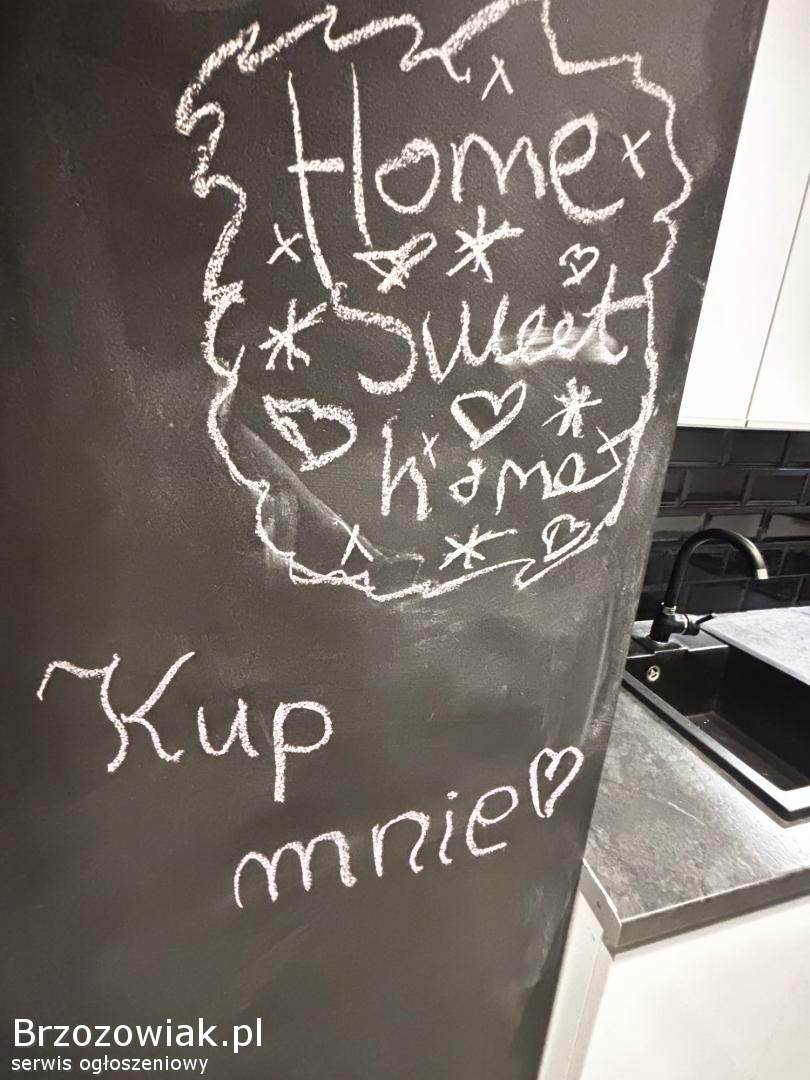 Home
Sweet
home
Kup
mnie
Brzozowiak.pl
serwis ogłoszeniowy